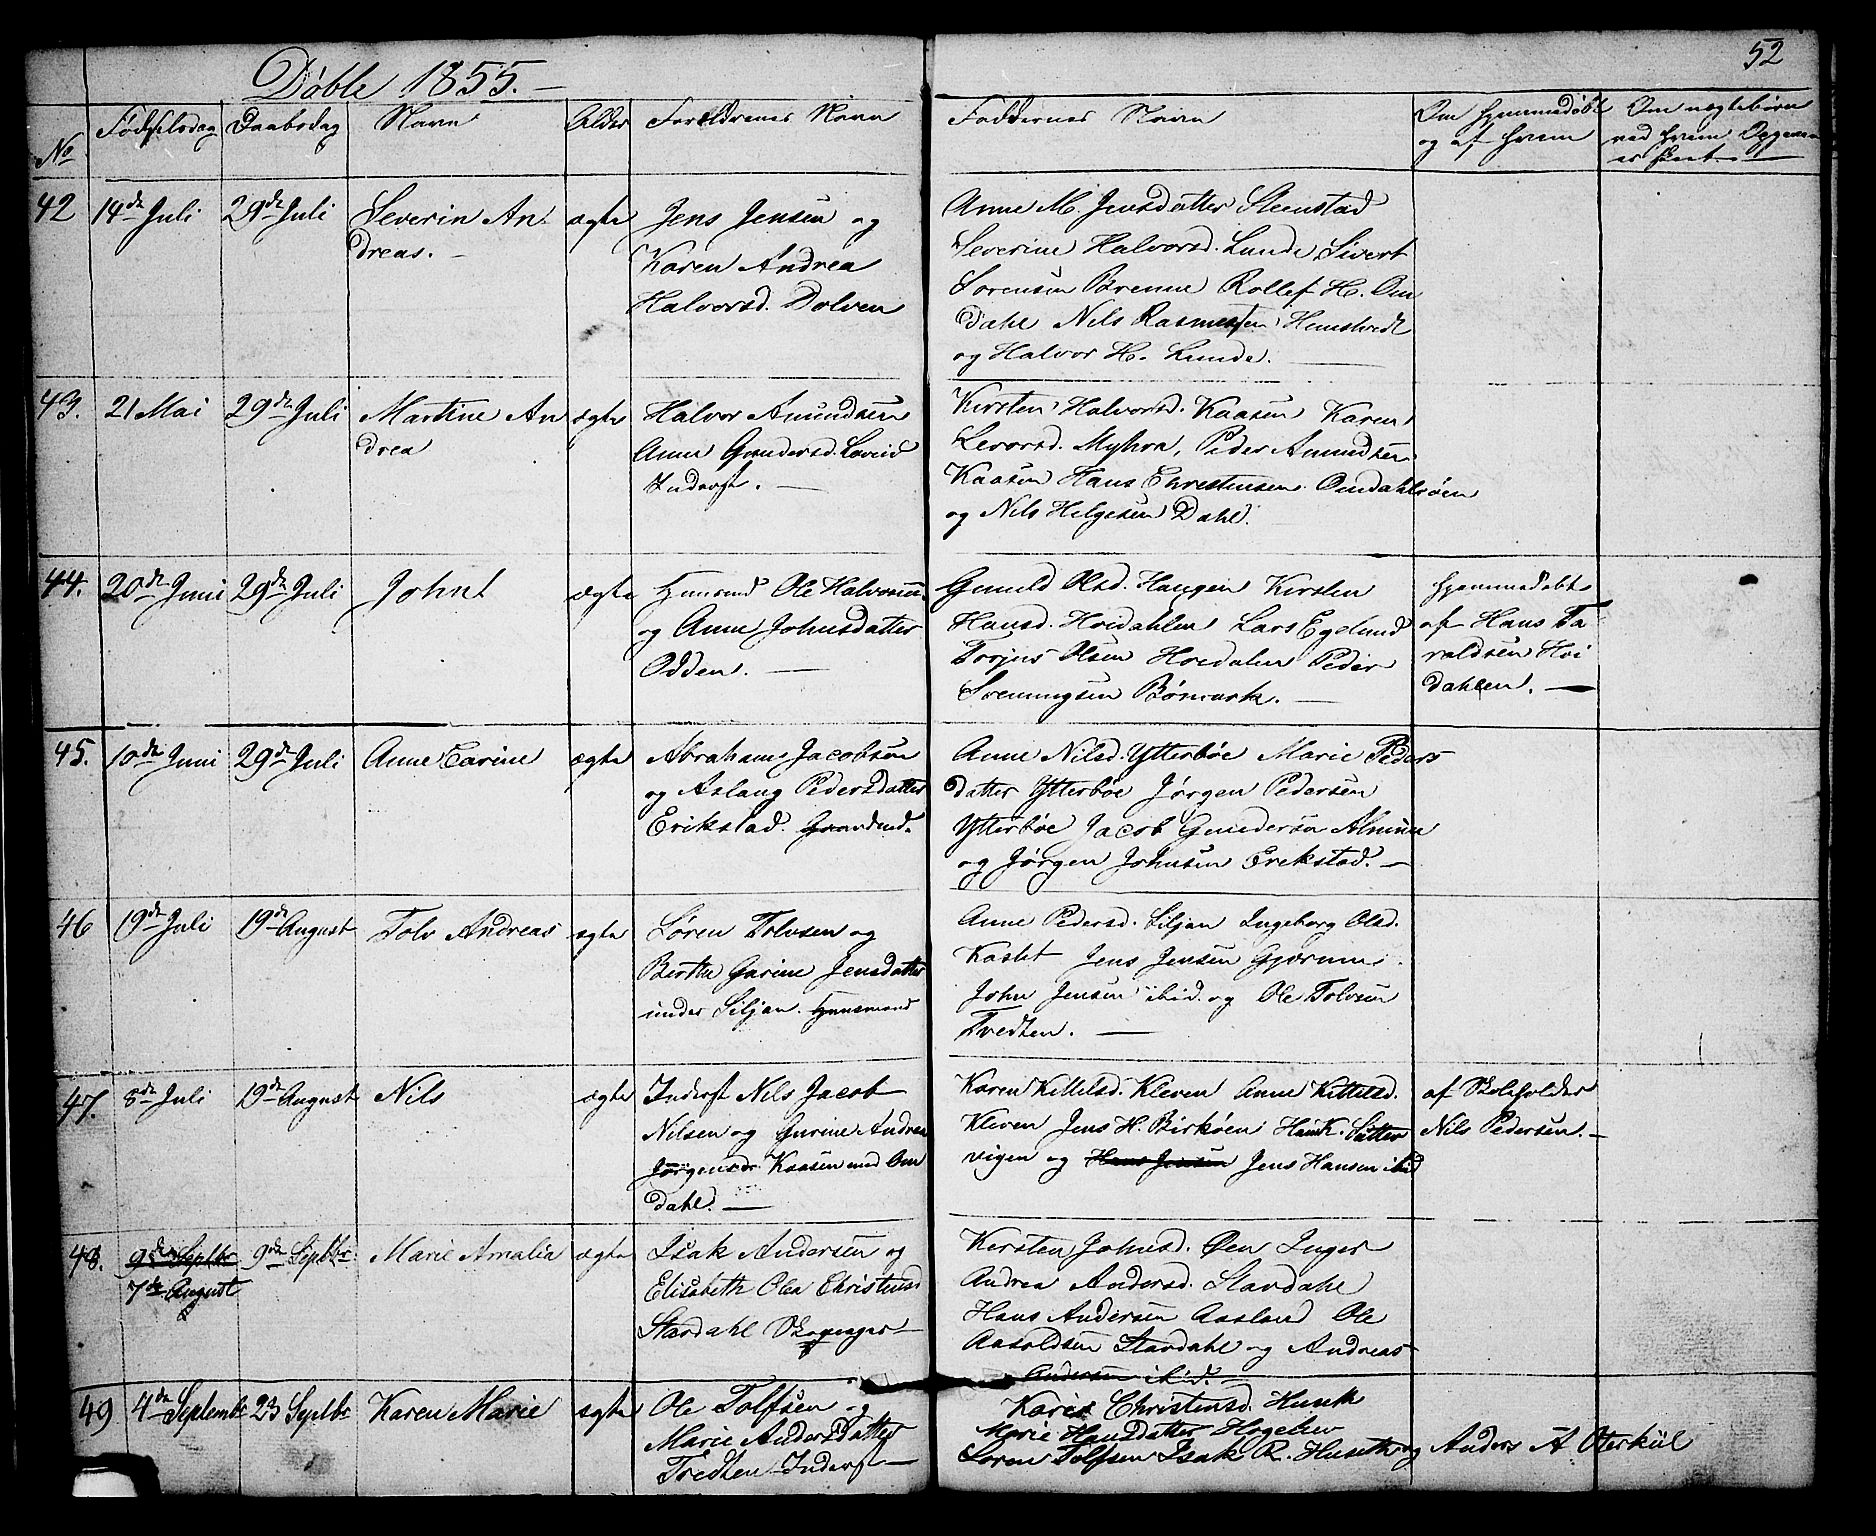 52
Døbte 1855. —
No Fødselsdag Daabsdag Navn Alder Forældrenes Navn Faddernes Navn Om hjemmedøbt og af hvem Om uægtebørn ved hvem Opgaven er skeet
42 14de Juli 29de Juli Severin An-
dreas. —
ægte
Jens Jensen og
Karen Andrea
Halvorsd. Dolven
Anne M. Jensdatter Steenstad
Severine Halvorsd. Lunde Sivert
Sorensen Brenne Rollef H. Om
dahl Nils Rasmussen
og Halvor H. Lunde.
43. 21 Mai 29de Juli Martine An
drea
ægte
Halvor Amundsen
Anne Gundersd. Loveid
Inderst. —
Kirsten Halvorsd. Kaasen Karen
Levorsd. Myhra, Peder Amundsen
Kaasen Hans Christensen Omdahlsøen
og Nils Helgesen Dahl.
44. 20de Juni 29de Juli John
ægte
Huusmd Ole Halvorsen
og Anne Johnsdatter
Odden. —
Gunild Olsd. Haugen Kirsten
Hansd. Hvidahlen Lars Egelund
Torjus Olsen Hvidalen Peder
Svenningsen Børmark. —
hjemmedøbt
af Hans Ta
raldsen Hvi
dahlen. —
45. 10de Juni 29de Juli Anne Carine
ægte
Abraham Jacobsen
og Aslaug Pedersdatter
Erikstad. Gaardmd.
Anne Nilsd. Ytterbøe Marie Peders
datter Ytterbøe Jørgen Pedersen
Ytterbøe Jacob Gundersen
og Jørgen Johnsen Erekstad. —
46 19de Juli 19de August Tolv Andreas
ægte
Søren Tolvsen og
Berthe Garine Jensdatter
under Siljan. Huusmand
Anne Pedersd. Siljan Ingeborg Olsd.
Kastet Jens Jensen Gjerum
John Jensen ibid. og Ole Tolvsen
Tredten. —
47. 8de Juli 19de August Nils
ægte
Inderst Nils Jacob
Nilsen og Gurine Andrea
Jørgensdr Kaasen med Om
dahl. —
Karen Kittilsd. Kleven Anne Kittilsd.
Kleven Jens H. Birkøen Hans K. Sætter
vigen og Hans Jensen Jens Hansen ibid
af Skoleholder
Nils Pedersen. —
48. 9de Septbr 9de Septbr. Marie Amalia
7de August
ægte
Isak Andersen og
Elisabeth Olea Christensd
Stavdahl
Kersten Johnsd. Øen Inger
Andrea Andersd. Stavdahl
Hans Andersen Aasland Ole
Aasoldsen Stavdahl og Andreas
Andersen ibid. —
49 4de Septembr 23 Septbr Karen Marie
ægte
Ole Tolfsen og
Marie Andersdatter
Tredten Inderst —
Karen Christensd. Hunik
Marie Hansdatter Hogelien
Soren Tolfsen Isak R. Huseth og Anders A Oterkiil